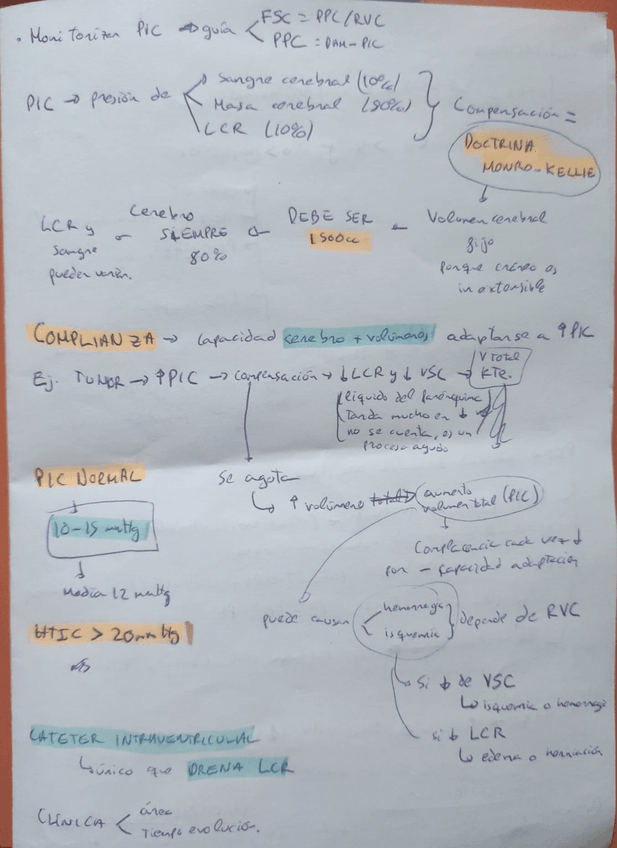 • Monitorizar PIC → guía < FSC = PPC/RVC
PPC = PAM-PIC
PIC → presión de
Sangre cerebral (10%)
Masa cerebral (80%)
LCR (10%)
Compensación =
DOCTRINA
MONRO-KELLIE
Volumen cerebral
fijo
porque cráneo es
inextensible
DEBE SER
1500cc
Cerebro
SIEMPRE
80%
LCR y
sangre
pueden variar.
COMPLIANZA → capacidad cerebro + volúmenes adaptarse a ↑PIC
Ej. TUMOR → ↑PIC → compensación → ↓LCR y ↓ VSC → V total
KTE.
líquido del parénquima
Tarda mucho en ↓
no se cuenta, es un
proceso agudo
Se agota
↳ ↑ volúmene total → aumento
volumen total (PIC)
Complacencia cada vez ↓
por - capacidad adaptación
PIC NORMAL
10-15 mmHg
Media 12 mmHg
HTIC > 20mmHg
puede causar
hemorragia
isquemia
depende de RVC
Si ↓ de VSC
↳ isquemia o hemorragia
si ↓ LCR
↳ edema o herniación
CATETER INTRAVENTRICULAR
↳ único que DRENA LCR
CLÍNICA < área
tiempo evolución.